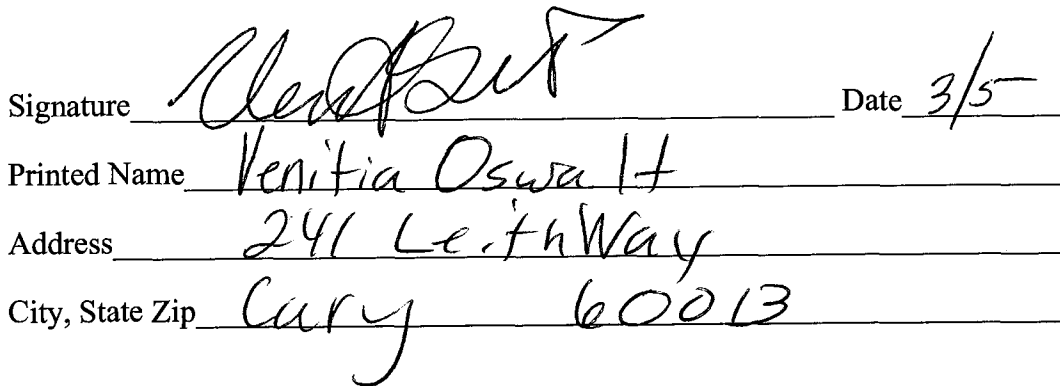 Signature Date 3/5
Printed Name Venitia Oswalt
Address 241 Leith Way
City, State Zip Cary 60013